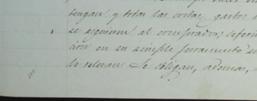 tengan y todas las costas, gastos
se siguieren al comprador;
cion en su simple juramento
de relevan. Se obligan, ademas,